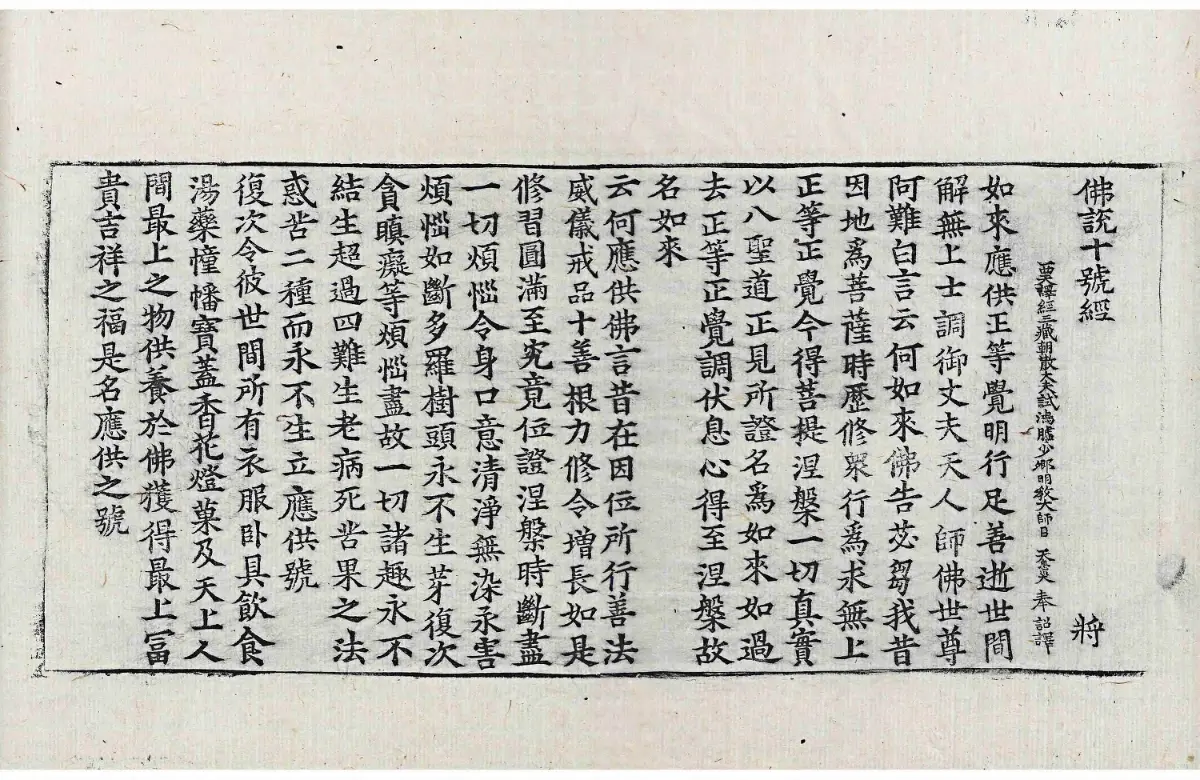 佛說十號經 將
西天譯經三藏朝散大夫試鴻臚少卿明教大師臣 天息災 奉 詔譯
如來應供正等覺明行足善逝世間
解無上士調御丈夫天人師佛世尊
阿難白言云何如來佛告苾芻我昔
因地爲菩薩時歷修衆行爲求無上
正等正覺今得菩提涅槃一切真實
以八聖道正見所證名爲如來如過
去正等正覺調伏息心得至涅槃故
名如來
云何應供佛言昔在因位所行善法
威儀戒品十善根力修令增長如是
修習圓滿至究竟位證涅槃時斷盡
一切煩惱令身口意清淨無染永害
煩惱如斷多羅樹頭永不生芽復次
貪瞋癡等煩惱盡故一切諸趣永不
結生超過四難生老病死苦果之法
惑苦二種而永不生立應供號
復次令彼世間所有衣服卧具飲食
湯藥幢幡寶蓋香花燈菓及天上人
間最上之物供養於佛獲得最上冨
貴吉祥之福是名應供之號